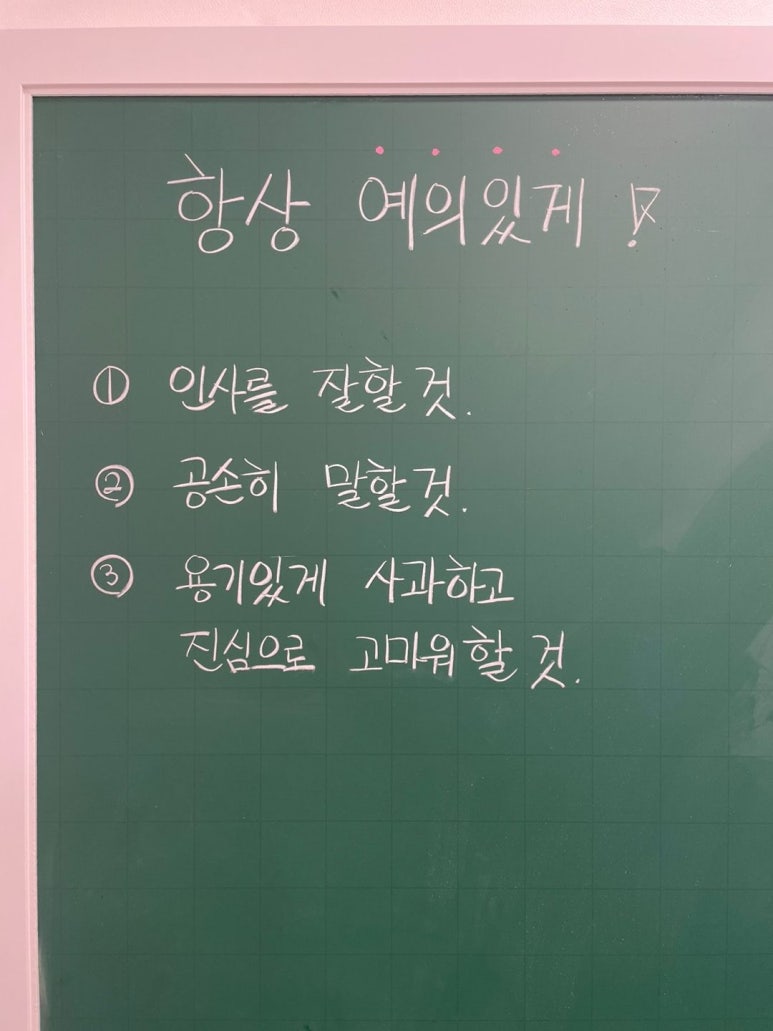 항상 예의있게!
① 인사를 잘할 것.
② 공손히 말할 것.
③ 용기있게 사과하고
진심으로 고마워할 것.